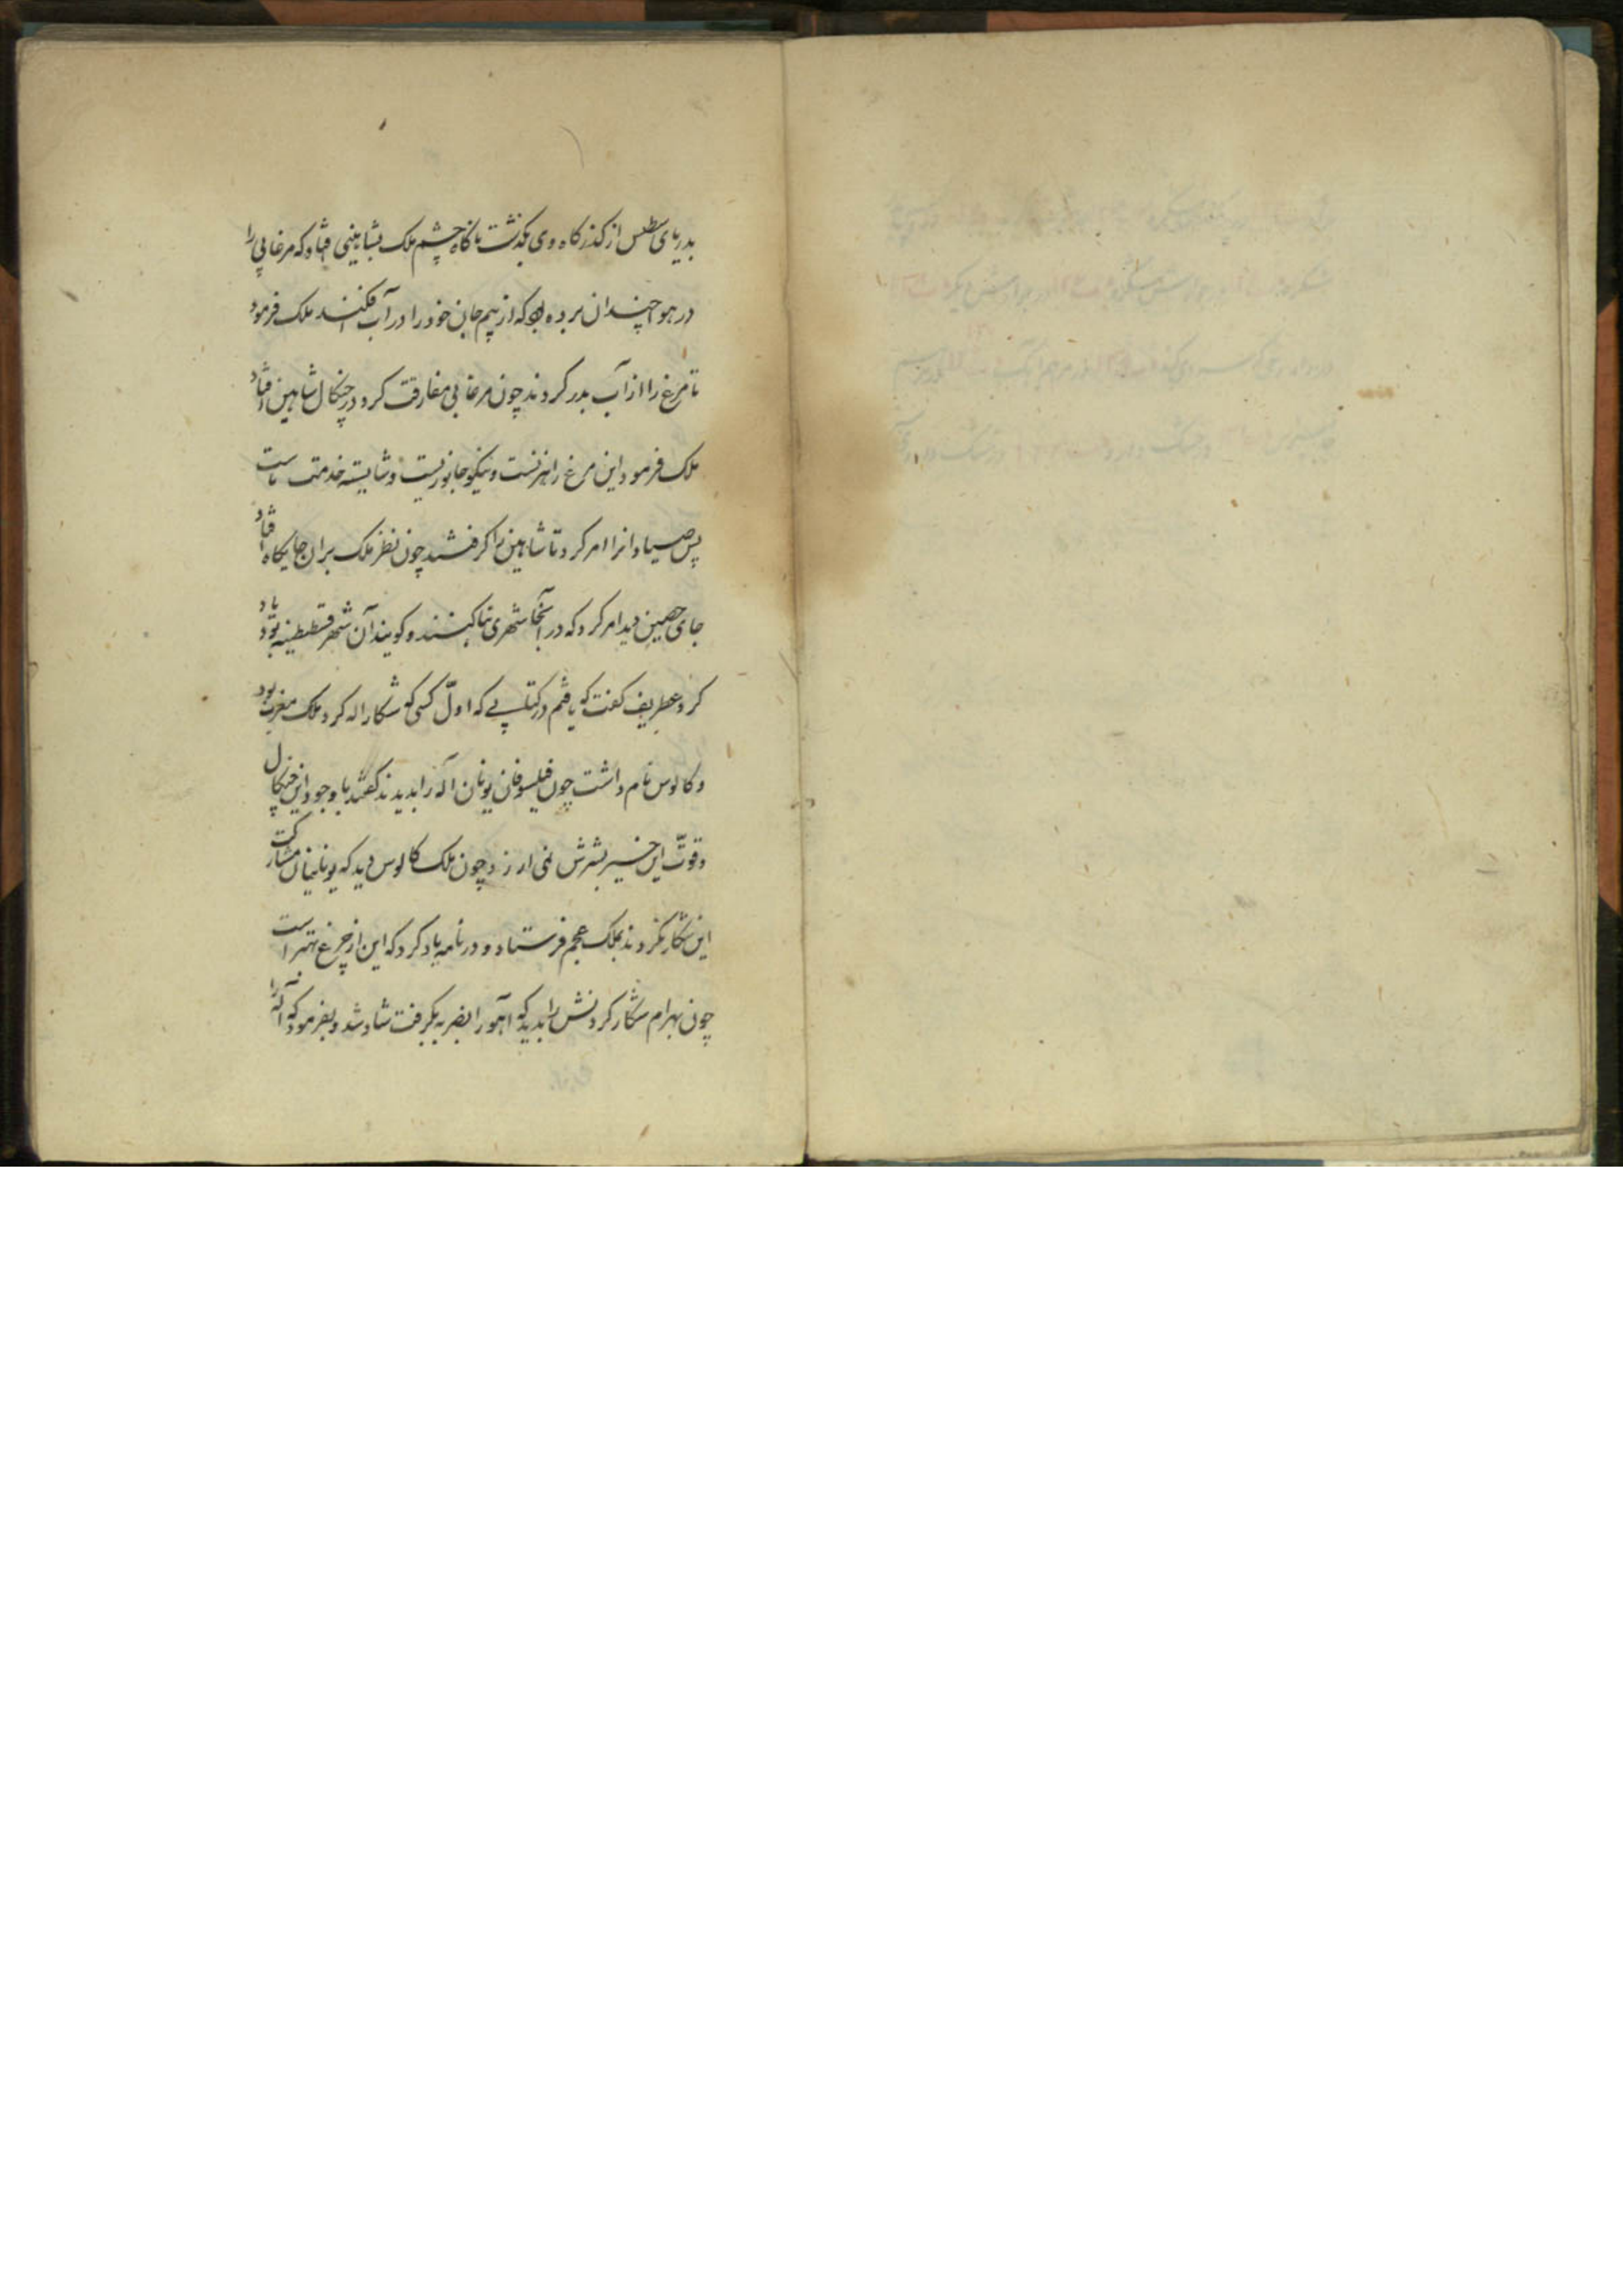 بدریای طلس از کذرکاه وی بکذشت ناکاه چشم ملک بشاهینی افتاد که مرغابی را
در هوا چندان برده که از بیم جان خود را در آب افکنند ملک فرمود
تا مرغ را از آب بدر کردند چون مرغابی مفارقت کرد در چنکال شاهین افتاد
ملک فرمود این مرغ را هنرنست و نیکو جانوریست و شایسته خدمت ماست
پس صیادانرا امر کرد تا شاهین را کرفتند چون نظر ملک بران جایکاه افتاد
جای حصین دید امر کرد که در آنجا شهری بنا کنند و کویند آن شهر قسطنطینیه بود
کرد عطریف کفت که یافتم در کتابی که اوّل کسی که شکار اله کرد ملک مغرب بود
و کالوس نام داشت چون فیلسوفان یونان اله را بدیدند کفتند با وجود این چنکال
و قوّت این خیر بشرش نمی ارزد چون ملک کالوس دید که یونانیان مشارکت
این شکار نکردند بملک عجم فرستاد و در نامه یاد کرد که این از چرغ بهتر است
چون بهرام شکار کردنش را بدید که آهو را بضربه بکرفت شاد شد و بفرمود که اله را